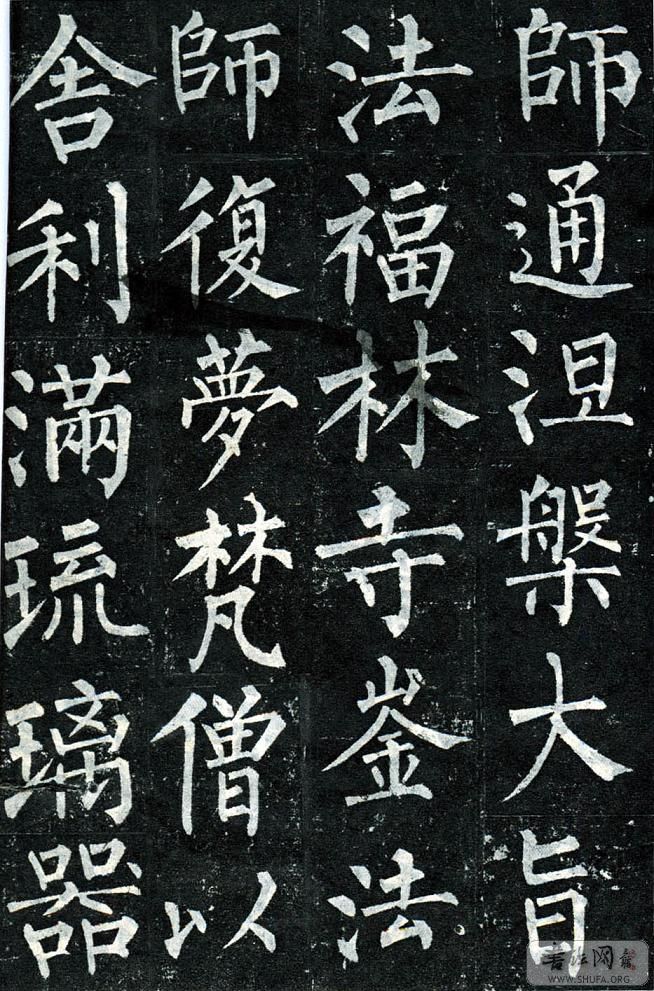 師通涅槃大旨
法福林寺崟法
師復夢梵僧以
舍利滿琉璃器
書法网
WWW.SHUFA.ORG